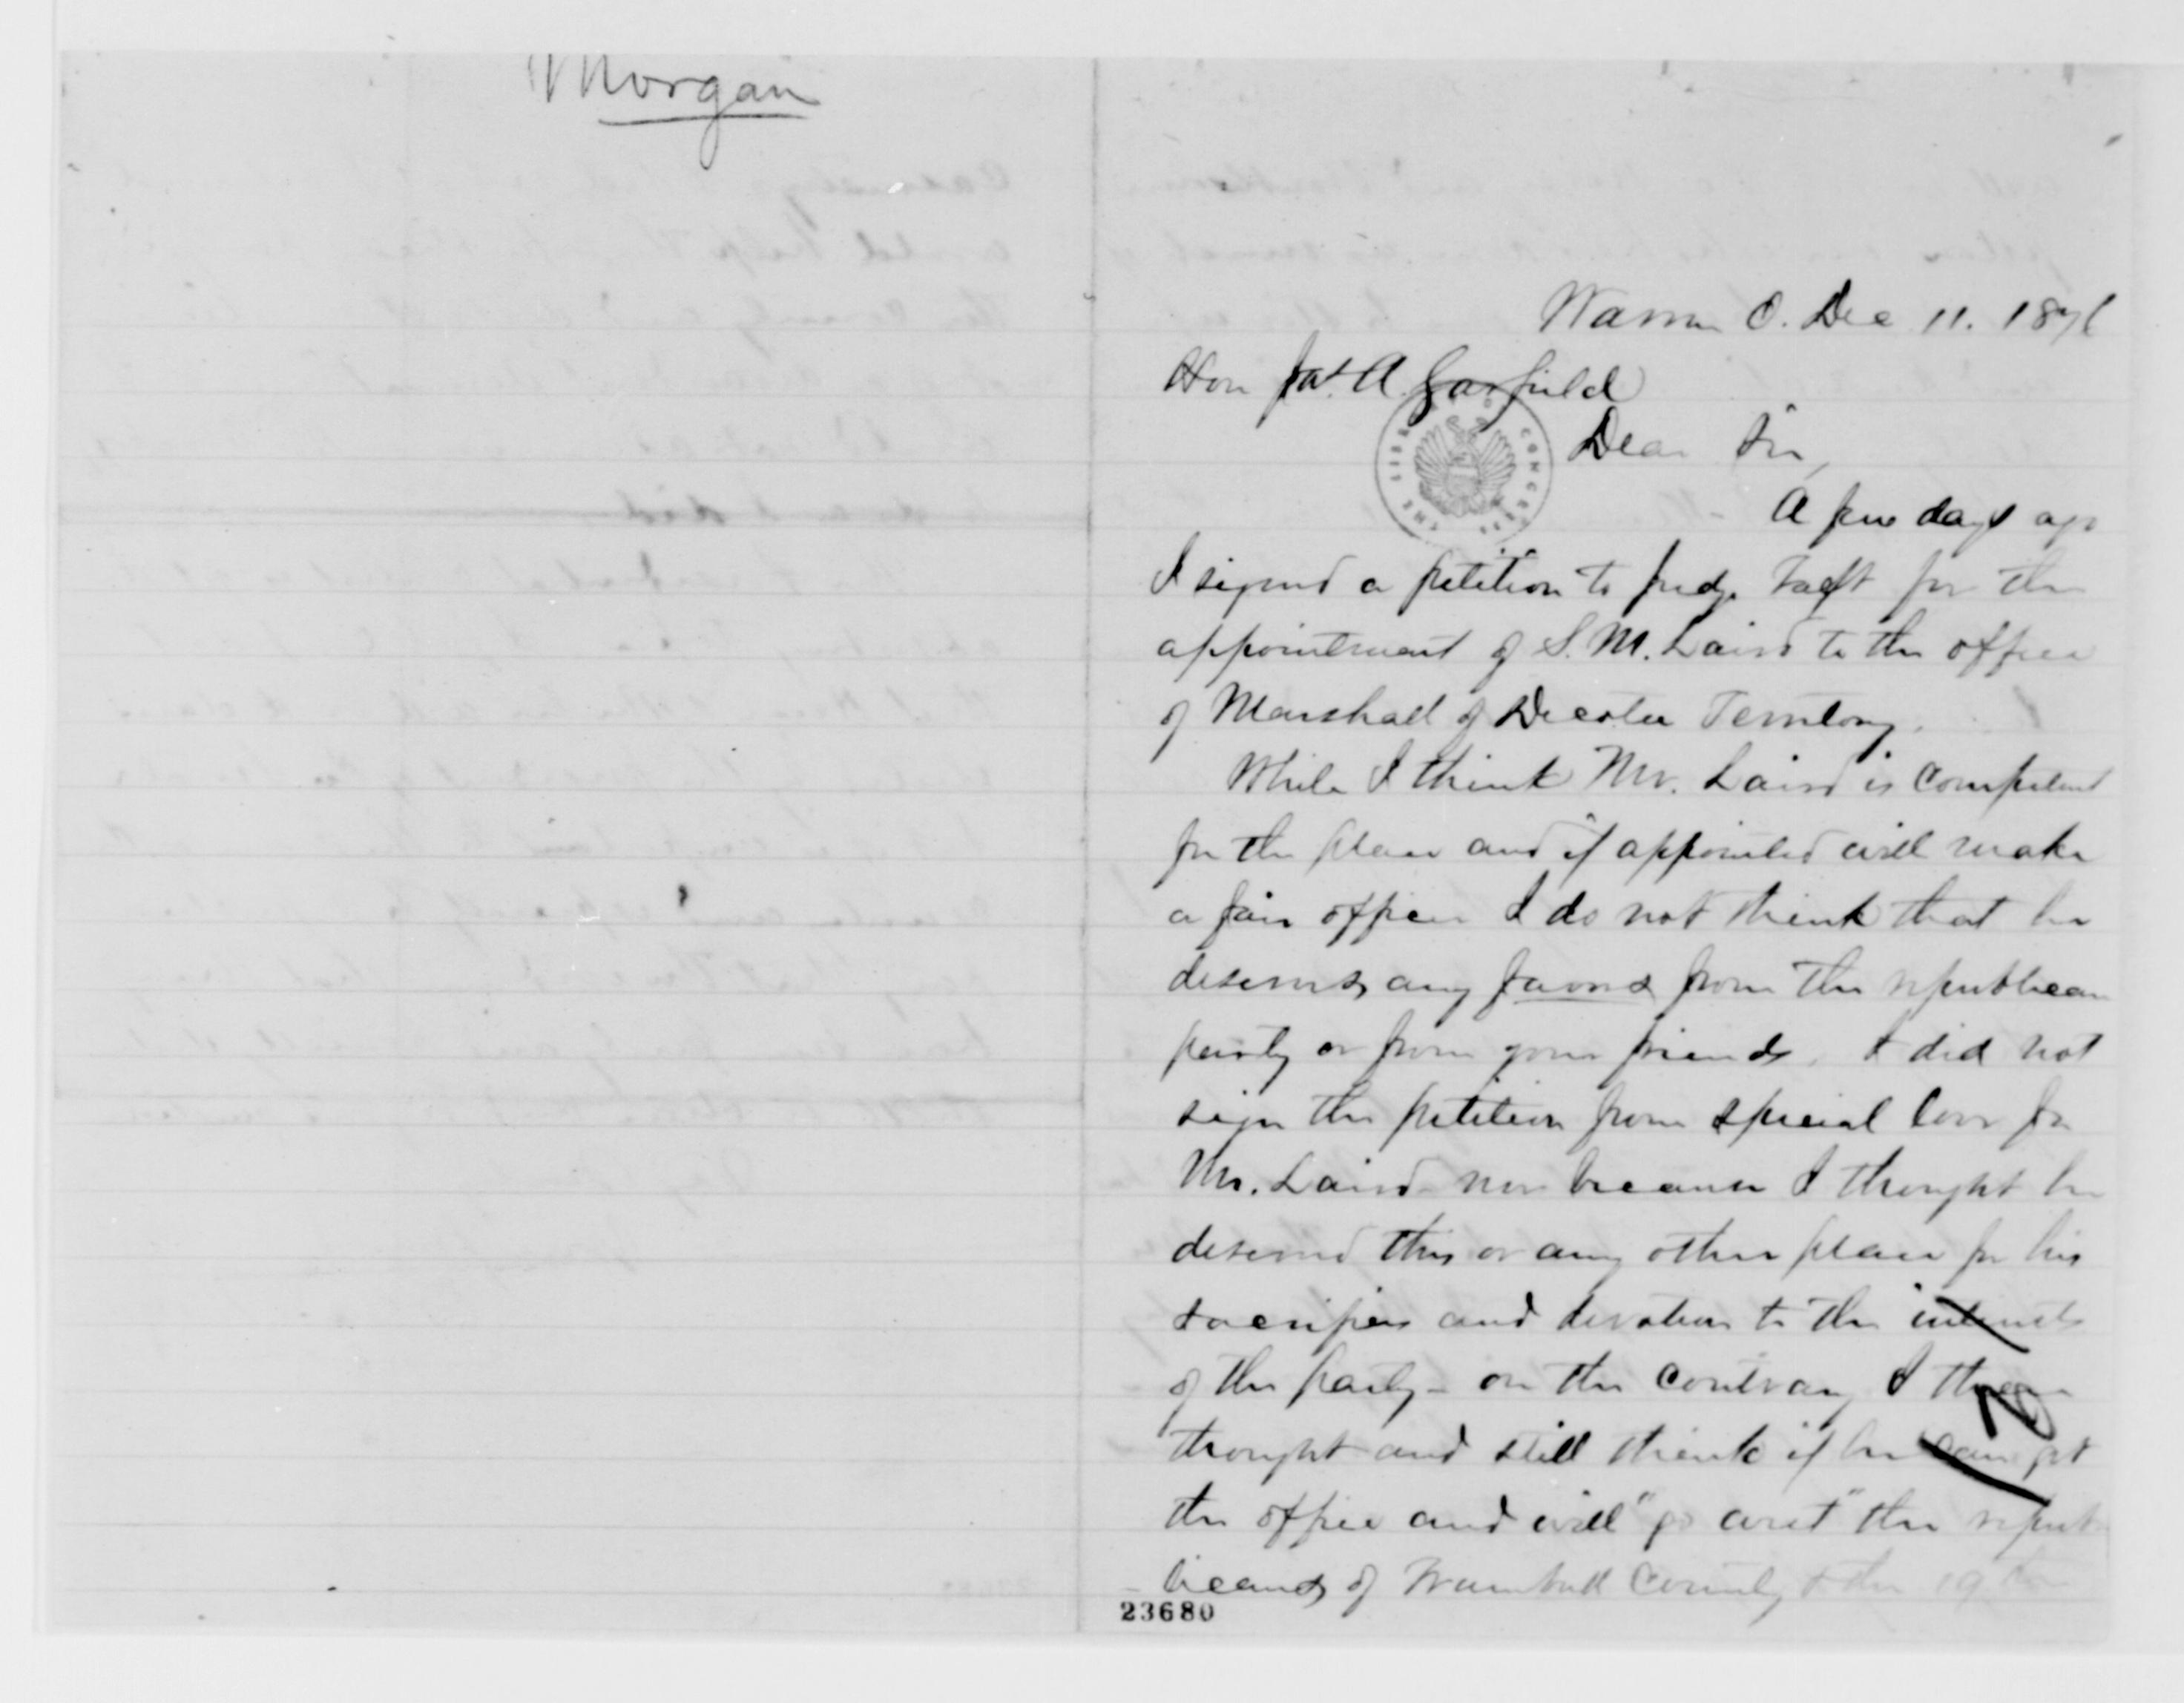 Morgan
Warren O. Dec 11. 1876
Hon Jas. A. Garfield
THE LIBRARY CONGRESS
Dear Sir,
A few days ago
I signed a petition to Judge Taft for the
appointment of S. M. Laird to the office
of Marshall of Decota Territory.
While I think Mr. Laird is competent
for the place and if appointed will make
a fair officer I do not think that he
deserves any favors from the republican
party or from your friends. I did not
sign the petition from special love for
Mr. Laird - nor because I thought he
deserved this or any other place for his
sacrifices and devotion to the interests
of the party - on the contrary I then
thought and still think if he can get
the office and will "go west" the repub
licans of Trumbull County & the 19
23680